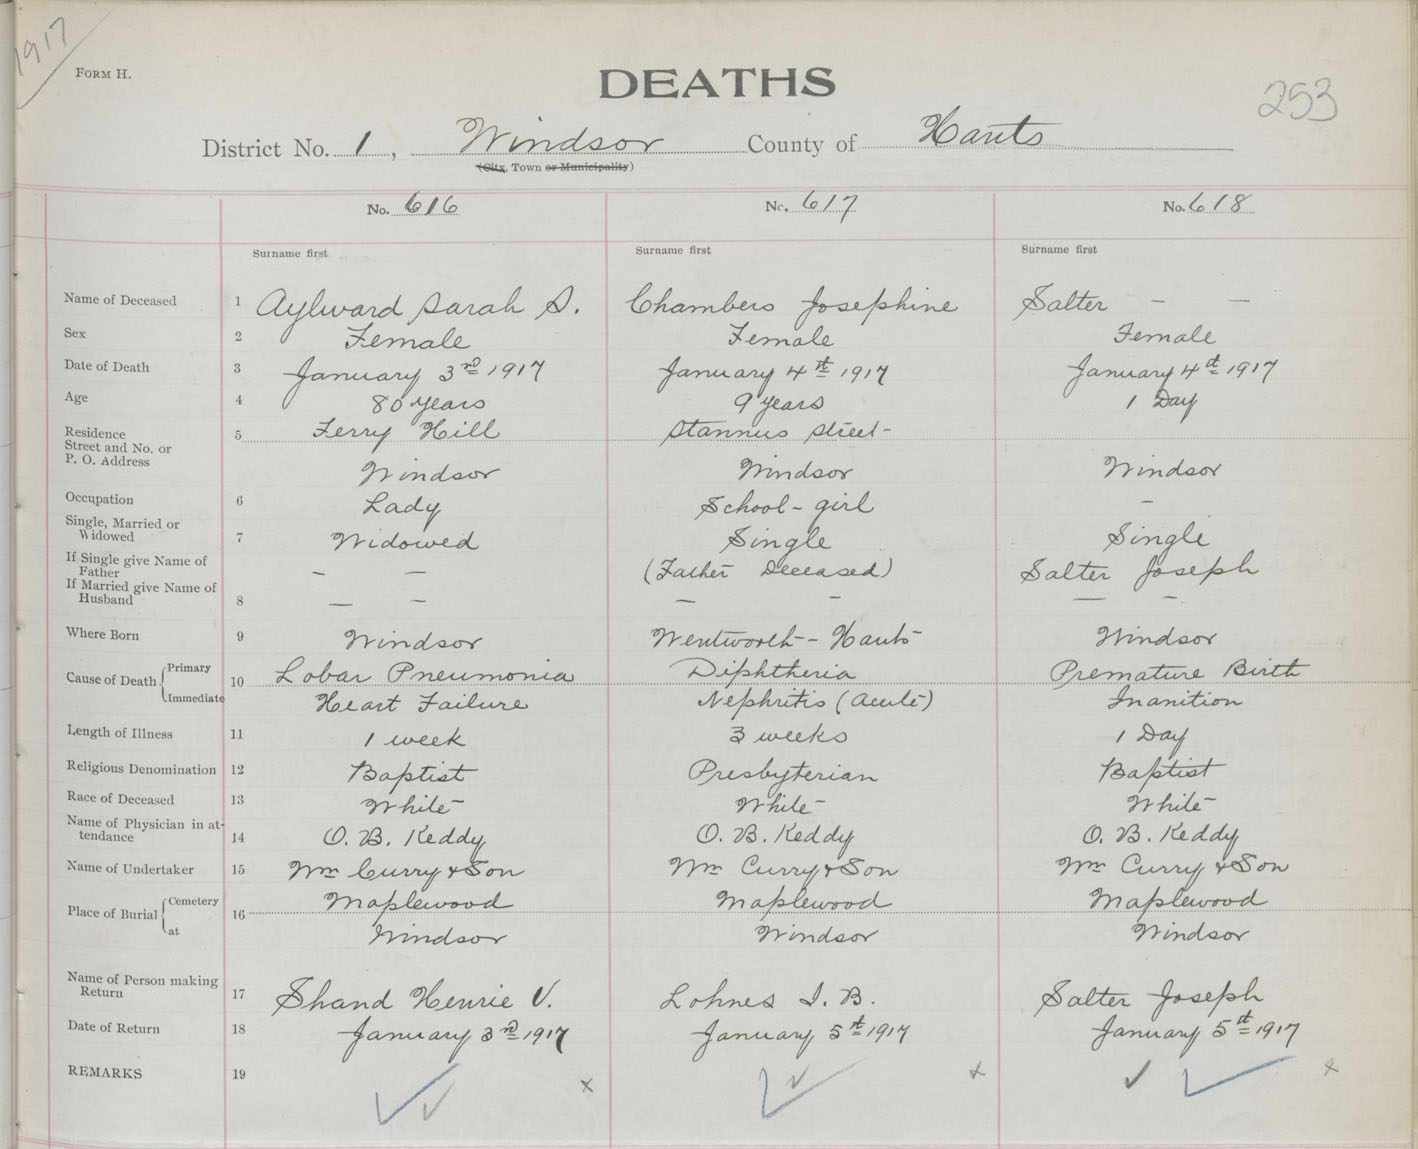 1917
FORM H.
DEATHS
253
District No. 1, Windsor County of Hants
(City, Town or Municipality)
No. 616 No. 617 No. 618
Surname first Surname first Surname first
Name of Deceased 1 Aylward Sarah S. Chambers Josephine Salter - -
Sex 2 Female Female Female
Date of Death 3 January 3rd 1917 January 4th 1917 January 4th 1917
Age 4 80 years 9 years 1 Day
Residence 5 Ferry Hill Stannus Street
Street and No. or
P. O. Address Windsor Windsor Windsor
Occupation 6 Lady School-girl -
Single, Married or
Widowed 7 Widowed Single Single
If Single give Name of
Father - - (Father Deceased) Salter Joseph
If Married give Name of
Husband 8 - - - - - -
Where Born 9 Windsor Wentworth - Hants Windsor
Cause of Death Primary 10 Lobar Pneumonia Diphtheria Premature Birth
Immediate Heart Failure Nephritis (Acute) Inanition
Length of Illness 11 1 week 3 weeks 1 Day
Religious Denomination 12 Baptist Presbyterian Baptist
Race of Deceased 13 White White White
Name of Physician in at-
tendance 14 O. B. Keddy O. B. Keddy O. B. Keddy
Name of Undertaker 15 Wm Curry & Son Wm Curry & Son Wm Curry & Son
Place of Burial Cemetery 16 Maplewood Maplewood Maplewood
at Windsor Windsor Windsor
Name of Person making
Return 17 Shand Henrie V. Lohnes I. B. Salter Joseph
Date of Return 18 January 3rd 1917 January 5th 1917 January 5th 1917
REMARKS 19 ✓ ✓ x ✓ ✓ x ✓ ✓ x